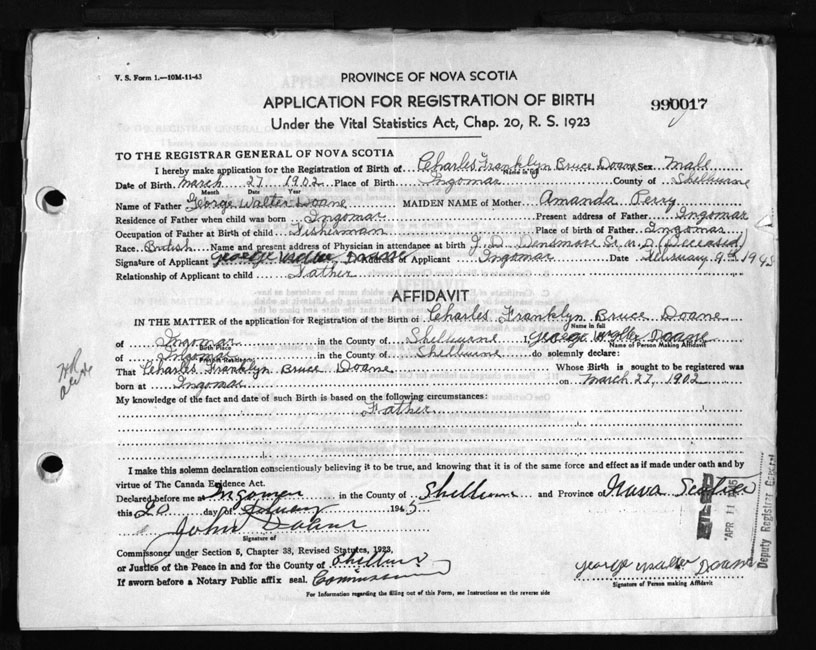 V. S. Form 1.—10M-11-43
PROVINCE OF NOVA SCOTIA
APPLICATION FOR REGISTRATION OF BIRTH
990017
Under the Vital Statistics Act, Chap. 20, R. S. 1923
TO THE REGISTRAR GENERAL OF NOVA SCOTIA
I hereby make application for the Registration of Birth of Charles Franklyn Bruce Doane Sex Male
Name in full
Date of Birth March 27 1902 Place of Birth Ingomar County of Shelburne
Month Day Year
Name of Father George Walter Doane MAIDEN NAME of Mother Amanda Perry
Residence of Father when child was born Ingomar Present address of Father Ingomar
Occupation of Father at Birth of child Fisherman Place of Birth of Father Ingomar
Race British Name and present address of Physician in attendance at birth J. D. Densmore Sr. M.D. (Deceased)
Signature of Applicant George Walter Doane Address of Applicant Ingomar Date February 9th 1945
Relationship of Applicant to child Father
AFFIDAVIT
IN THE MATTER of the application for Registration of the Birth of Charles Franklyn Bruce Doane
Name in full
of Ingomar in the County of Shelburne I George Walter Doane
Birth Place Name of Person Making Affidavit
of Ingomar in the County of Shelburne do solemnly declare:
Present Residence
That Charles Franklyn Bruce Doane Whose Birth is sought to be registered was
born at Ingomar on March 27, 1902
My knowledge of the fact and date of such Birth is based on the following circumstances:
Father
I make this solemn declaration conscientiously believing it to be true, and knowing that it is of the same force and effect as if made under oath and by
virtue of The Canada Evidence Act.
Declared before me at Ingomar in the County of Shelburne and Province of Nova Scotia
this 20 day of February 1945
John Doane
Signature of
Commissioner under Section 5, Chapter 38, Revised Statutes, 1923,
or Justice of the Peace in and for the County of Shelburne
If sworn before a Notary Public affix seal. Commissioner
George Walter Doane
Signature of Person making Affidavit
For Information regarding the filling out of this Form, see Instructions on the reverse side
FILED
APR 11 1945
Deputy Registrar General